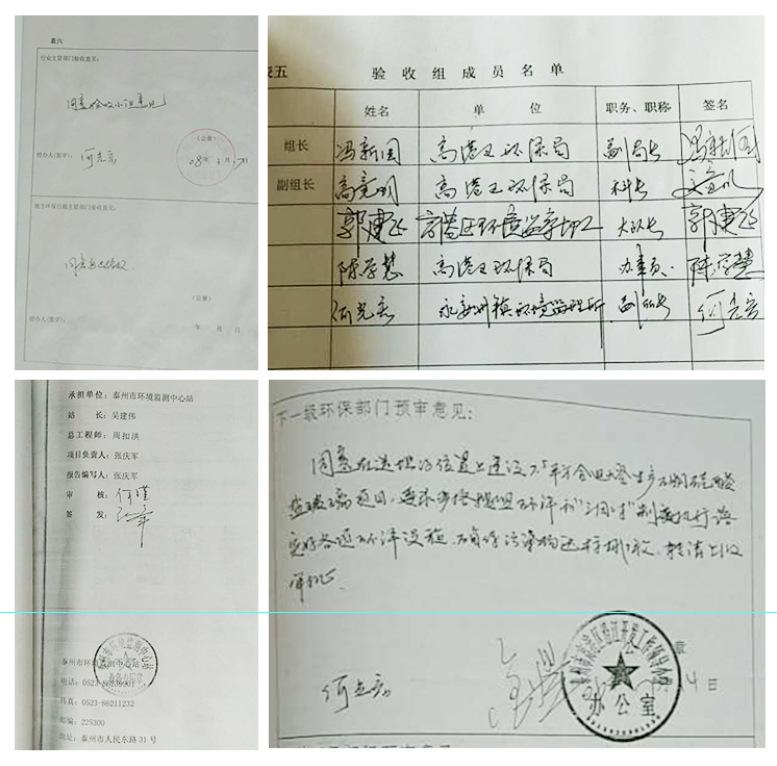 表六
行业主管部门验收意见:
同意验收小组意见
(公章)
经办人(签字): 何光宏
08年 月 日
地方环保行政主管部门验收意见:
(公章)
经办人(签字):
年 月 日
表五
验收组成员名单
姓名 单位 职务、职称 签名
组长 冯新国 高港区环保局 副局长 冯新国
副组长 高竟明 高港区环保局 科长
郭建运 高港区环境监察 大队长 郭建运
陈存慧 高港区环保局 办事员 陈存慧
何光宏 永安洲镇环境监理所 副所长 何光宏
承担单位: 泰州市环境监测中心站
站 长: 吴建伟
总工程师: 周扣洪
项目负责人: 张庆军
报告编写人: 张庆军
审 核: 何瑾
签 发:
泰州市环境监测中心站
电话: 0523-86239901
传真: 0523-86211232
邮编: 225300
地址: 泰州市人民东路31号
下一级环保部门预审意见:
同意在选址的位置上建设
项目,要求严格按照环评和"三同时"制度执行落
实好各项环评设施,确保污染物达标排放,转请上级
审批。
章
何光宏
4日
办公室